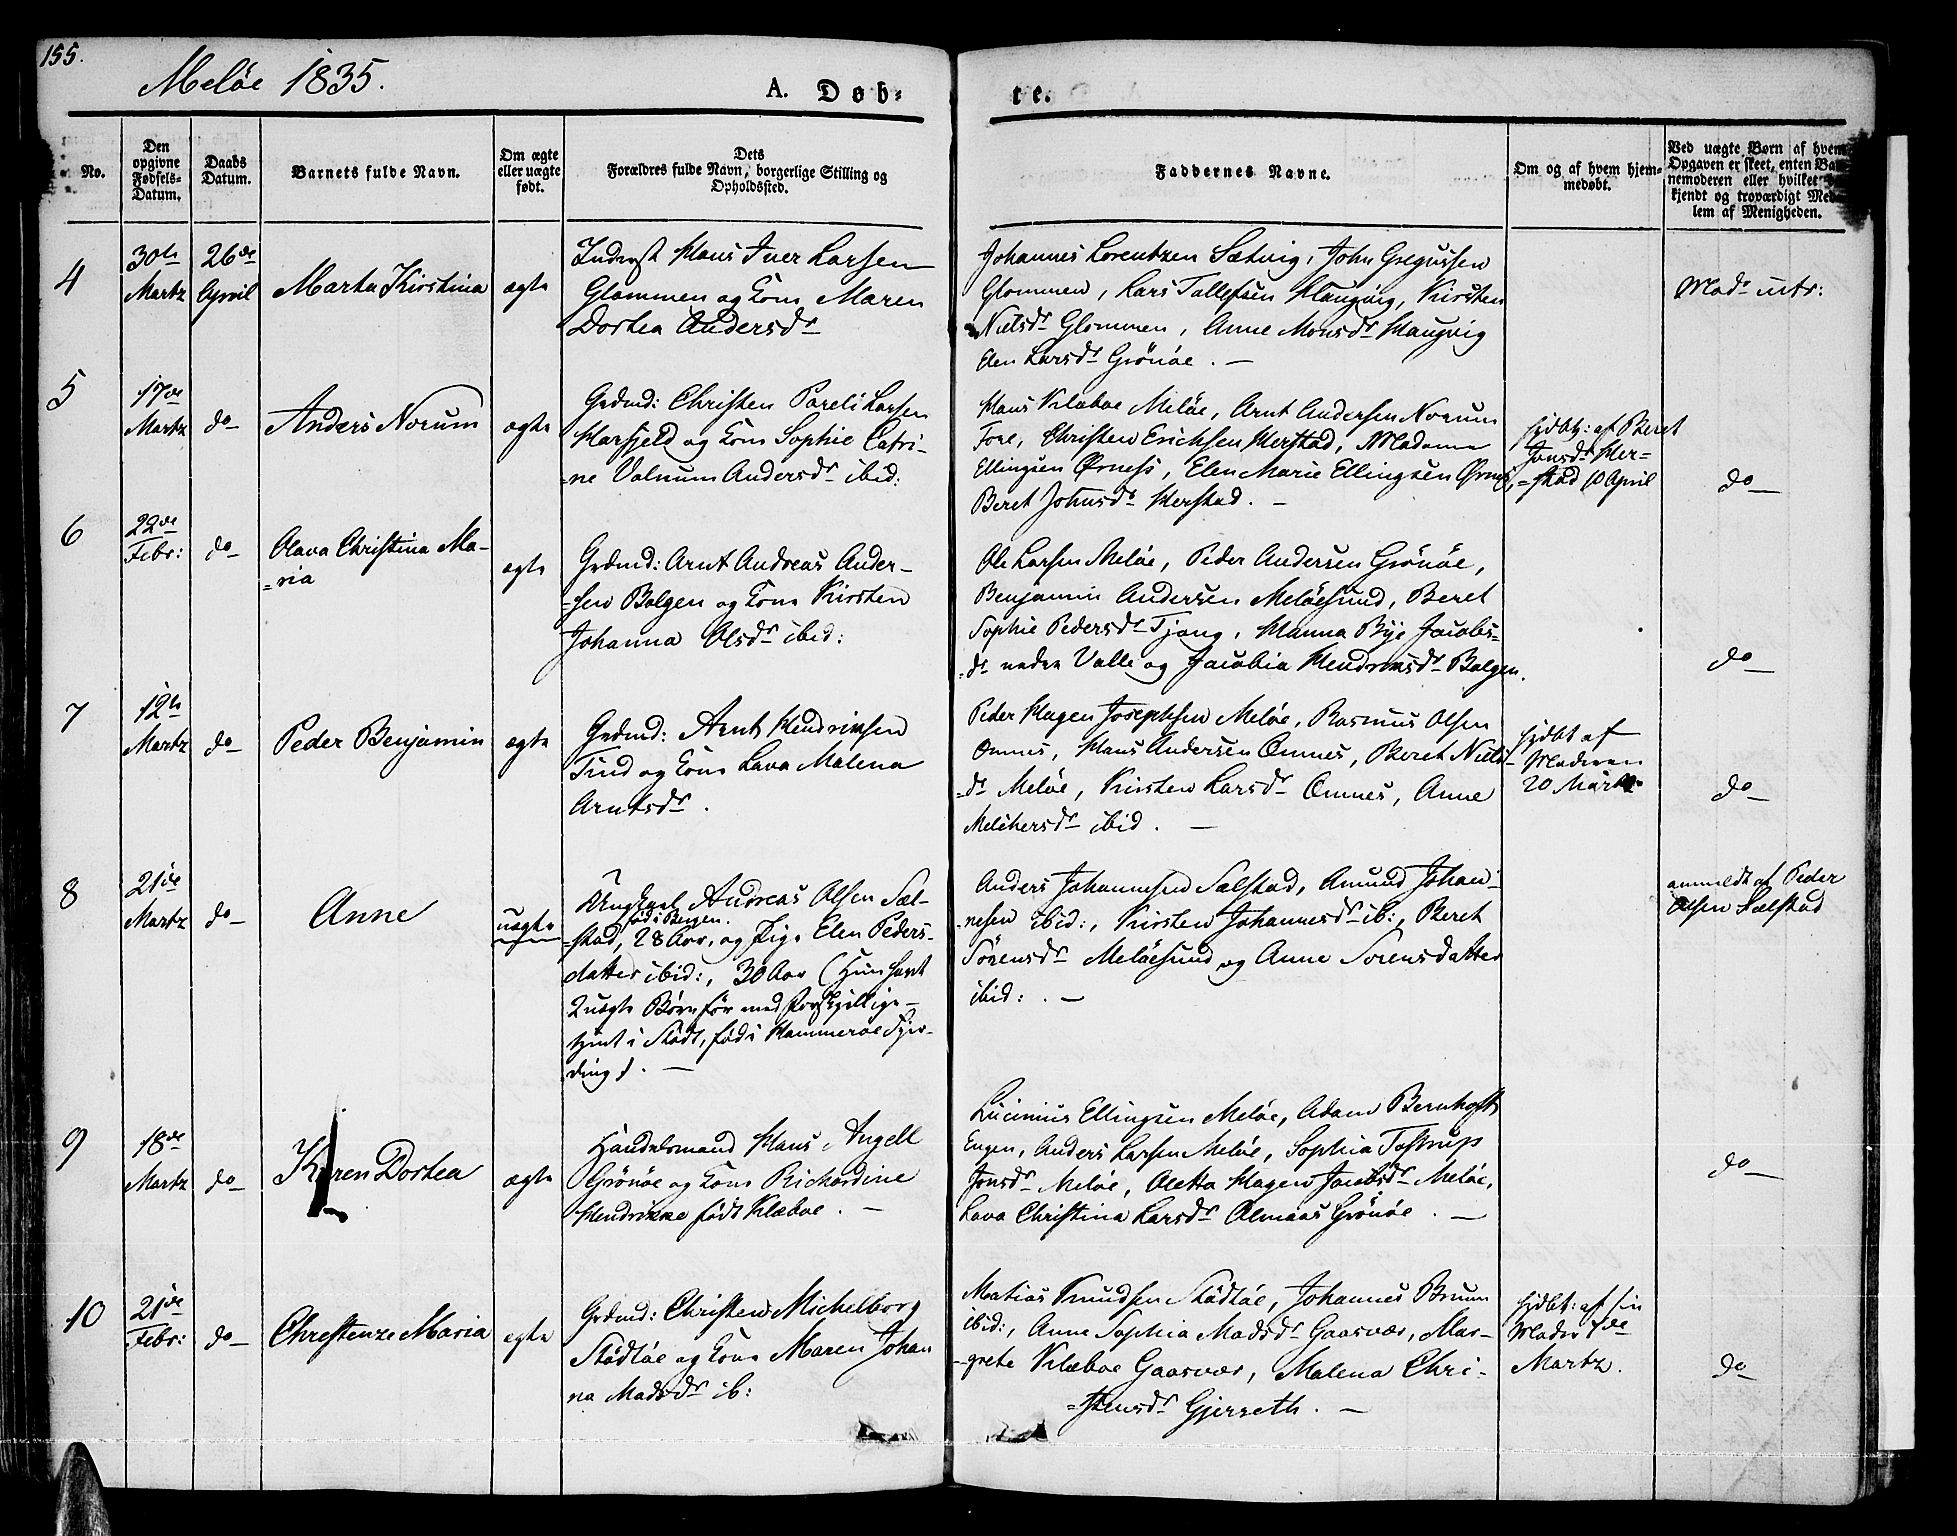 155.
Meløe 1835.
A. Døb-
te.
No.
Den opgivne Fødsels-Datum.
Daabs Datum.
Barnets fulde Navn.
Om ægte eller uægte født.
Dets Forældres fulde Navn, borgerlige Stilling og Opholdssted.
Faddernes Navne.
Om og af hvem hjem-medøbt.
Ved uægte Børn af hvem Opgaven er skeet, enten Bar-nemoderen eller hvilket kjendt og troværdigt Med-lem af Menigheden.
4
30te
Martz
26de
April
Marta Kirstina
ægte
Inderst Hans Iver Larsen
Glommen og Kone Maren
Dortea Andersdr
Johannes Lorentzen Sætvig, John Gregussen
Glommen, Lars Tollefsen Haugvig, Kirsten
Nielsdr Glommen, Anne Monsdr Haugvig
Elen Larsdr Grönöe. —
5
17de
Martz
do
Anders Norum
ægte
Grdmd: Christen Pareli Larsen
Harfjeld og Kone Sophie Catri-
-ne Valnum Andersdr ibid:
Hans Klæboe Meløe, Arnt Andersen Norum
Fore, Christen Erichsen Herstad, Madame
Ellingsen Ørnes, Elen Marie Ellingsen Ørnes,
Beret Johnsdr Herstad. —
hjdbt: af Beret
Jonsdr Her-
-stad 10 April
do
6
22de
Febr:
do
Olava Christina Ma-
-ria
ægte
Grdmd: Arnt Andreas Ander-
-sen Bolgen og Kone Kirsten
Johanna Olsdr ibid:
Ole Larsen Meløe, Peder Andersen Grönöe,
Benjamin Andersen Meløesund, Beret
Sophie Pedersdr Tjong, Hanna Bye Jacobs-
-dr nedre Valle og Jacobia Hendricsdr Bolgen.
do
7
12te
Martz
do
Peder Benjamin
ægte
Grdmd: Arnt Hendricsen
Tind og Kone Lava Malena
Arntsdr.
Peder Hagen Josephsen Meløe, Rasmus Olsen
Omnes, Hans Andersen Omnes, Beret Niels-
-dr Meløe, Kirsten Larsdr Omnes, Anne
Melchersdr ibid. —
hjdbt af
Moderen
20 Martz
do
8
21de
Martz
do
Anne
uægte
Ungkarl Andreas Olsen Sæl-
-stad, 28 Aar, og Pige Elen Peders-
född i Bergen.
datter ibid:, 30 Aar (Hun havt
2 uægte Börn för med forskjellige —
tjent i Stödt, född i Hammeröe Fjer-
ding). —
Anders Johannesen Sælstad, Amund Johan-
-nesen ibid:, Kirsten Johannesdr ib:, Beret
Sörensdr Meløesund og Anne Sorensdatter
ibid:. —
anmeldt af Peder
Olsen Sælstad
9
18de
Martz
do
Karen Dortea
ægte
Handelsmand Hans Angell
Grönöe og Kone Richardine
Hendrikke född Klæboe. —
Lucinius Ellingsen Meløe, Adam Bernhoft
Engen, Anders Larsen Meløe, Sophia Tostrup
Jonsdr Meløe, Oletta Hagen Jacobsdr Meløe,
Lava Christina Larsdr Olmaas Grönöe. —
do
10
21de
Febr:
do
Christenze Maria
ægte
Grdmd: Christen Michelborg
Stödtöe og Kone Maren Johan
na Madsdr ib:
Matias Knudsen Stödtöe, Johannes Bruun
ibid:, Anne Sophia Madsdr Gaasvær, Mar-
-grete Klæboe Gaasvær, Malena Chri-
-stensdr Gjersseth. —
hjdbt: af sin
Moder 1de
Martz.
do